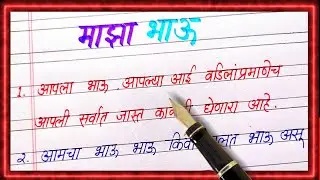 माझा भाऊ
1. आपला भाऊ आपल्या आई वडिलांप्रमाणेच
आपली सर्वात जास्त काळजी घेणारा आहे.
२. आमचा भाऊ भाऊ असू